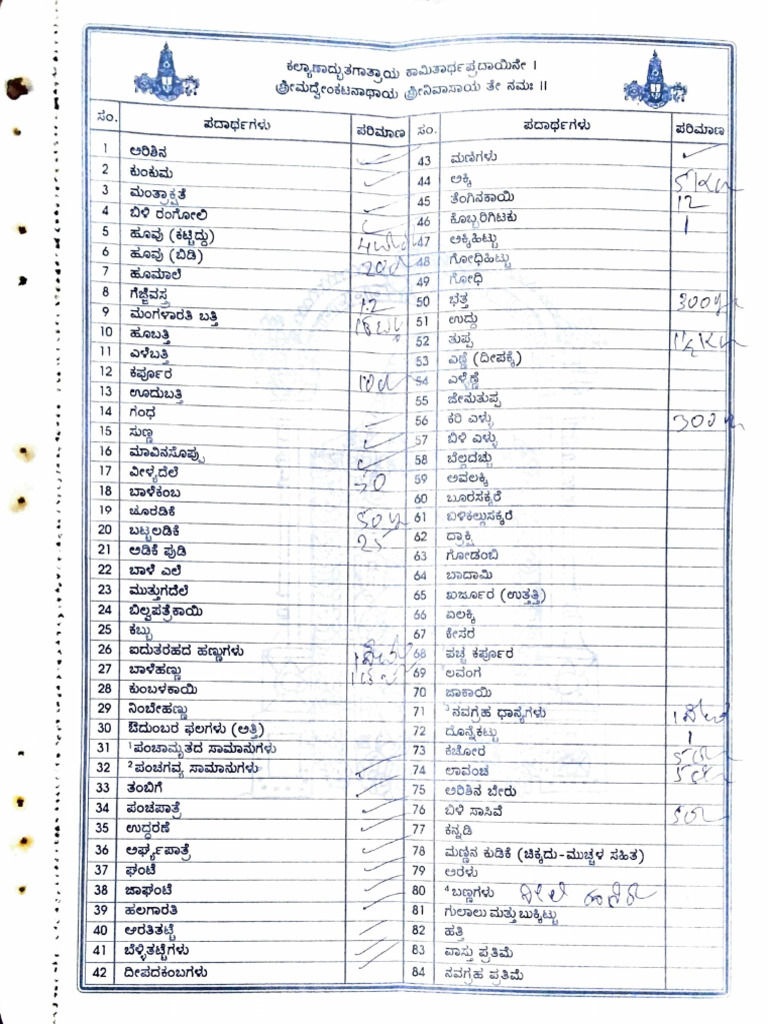 ಕಲ್ಯಾಣಾದ್ಭುತಗಾತ್ರಾಯ ಕಾಮಿತಾರ್ಥಪ್ರದಾಯಿನೇ ।
ಶ್ರೀಮದ್ವೇಂಕಟನಾಥಾಯ ಶ್ರೀನಿವಾಸಾಯ ತೇ ನಮಃ ॥
ಸಂ. ಪದಾರ್ಥಗಳು ಪರಿಮಾಣ
1 ಅರಿಶಿನ ✓
2 ಕುಂಕುಮ ✓
3 ಮಂತ್ರಾಕ್ಷತೆ ✓
4 ಬಿಳಿ ರಂಗೋಲಿ ✓
5 ಹೂವು (ಕಟ್ಟಿದ್ದು) 4
6 ಹೂವು (ಬಿಡಿ) 200
7 ಹೂಮಾಲೆ
8 ಗೆಜ್ಜೆವಸ್ತ್ರ 12
9 ಮಂಗಳಾರತಿ ಬತ್ತಿ
10 ಹೂಬತ್ತಿ
11 ಎಳೆಬತ್ತಿ
12 ಕರ್ಪೂರ
13 ಊದುಬತ್ತಿ
14 ಗಂಧ ✓
15 ಸುಣ್ಣ ✓
16 ಮಾವಿನಸೊಪ್ಪು ✓
17 ವೀಳ್ಯದೆಲೆ 50
18 ಬಾಳೆಕಂಬ
19 ಚೂರಡಿಕೆ 50
20 ಬಟ್ಟಲಡಿಕೆ 25
21 ಅಡಿಕೆ ಪುಡಿ
22 ಬಾಳೆ ಎಲೆ
23 ಮುತ್ತುಗದೆಲೆ
24 ಬಿಲ್ವಪತ್ರೆಕಾಯಿ
25 ಕಬ್ಬು
26 ಐದುತರಹದ ಹಣ್ಣುಗಳು
27 ಬಾಳೆಹಣ್ಣು
28 ಕುಂಬಳಕಾಯಿ
29 ನಿಂಬೇಹಣ್ಣು
30 ಔದುಂಬರ ಫಲಗಳು (ಅತ್ತಿ)
31 ¹ಪಂಚಾಮೃತದ ಸಾಮಾನುಗಳು
32 ²ಪಂಚಗವ್ಯ ಸಾಮಾನುಗಳು ✓
33 ತಂಬಿಗೆ ✓
34 ಪಂಚಪಾತ್ರೆ ✓
35 ಉದ್ಧರಣೆ ✓
36 ಅರ್ಘ್ಯಪಾತ್ರೆ ✓
37 ಘಂಟೆ ✓
38 ಜಾಘಂಟೆ ✓
39 ಹಲಗಾರತಿ ✓
40 ಆರತಿತಟ್ಟೆ ✓
41 ಬೆಳ್ಳಿತಟ್ಟೆಗಳು ✓
42 ದೀಪದಕಂಬಗಳು ✓
ಸಂ. ಪದಾರ್ಥಗಳು ಪರಿಮಾಣ
43 ಮಣೆಗಳು ✓
44 ಅಕ್ಕಿ 5 Kg
45 ತೆಂಗಿನಕಾಯಿ 12
46 ಕೊಬ್ಬರಿಗಿಟಕು 1
47 ಅಕ್ಕಿಹಿಟ್ಟು
48 ಗೋಧಿಹಿಟ್ಟು
49 ಗೋಧಿ
50 ಭತ್ತ 300
51 ಉದ್ದು
52 ತುಪ್ಪ
53 ಎಣ್ಣೆ (ದೀಪಕ್ಕೆ)
54 ಎಳ್ಳೆಣ್ಣೆ
55 ಜೇನುತುಪ್ಪ
56 ಕರಿ ಎಳ್ಳು 300
57 ಬಿಳಿ ಎಳ್ಳು
58 ಬೆಲ್ಲದಚ್ಚು
59 ಅವಲಕ್ಕಿ
60 ಬೂರಸಕ್ಕರೆ
61 ಬಿಳಿಕಲ್ಲುಸಕ್ಕರೆ
62 ದ್ರಾಕ್ಷಿ
63 ಗೋಡಂಬಿ
64 ಬಾದಾಮಿ
65 ಖರ್ಜೂರ (ಉತ್ತತ್ತಿ)
66 ಏಲಕ್ಕಿ
67 ಕೇಸರ
68 ಪಚ್ಚ ಕರ್ಪೂರ
69 ಲವಂಗ
70 ಜಾಕಾಯಿ
71 ³ನವಗ್ರಹ ಧಾನ್ಯಗಳು
72 ದೊನ್ನೆಕಟ್ಟು 1
73 ಕಚೋರ
74 ಲಾವಂಚ
75 ಅರಿಶಿನ ಬೇರು
76 ಬಿಳಿ ಸಾಸಿವೆ
77 ಕನ್ನಡಿ
78 ಮಣ್ಣಿನ ಕುಡಿಕೆ (ಚಿಕ್ಕದು-ಮುಚ್ಚಳ ಸಹಿತ)
79 ಅರಳು
80 ⁴ಬಣ್ಣಗಳು
81 ಗುಲಾಲು ಮತ್ತು ಬುಕ್ಕಿಟ್ಟು
82 ಹತ್ತಿ
83 ವಾಸ್ತು ಪ್ರತಿಮೆ
84 ನವಗ್ರಹ ಪ್ರತಿಮೆ